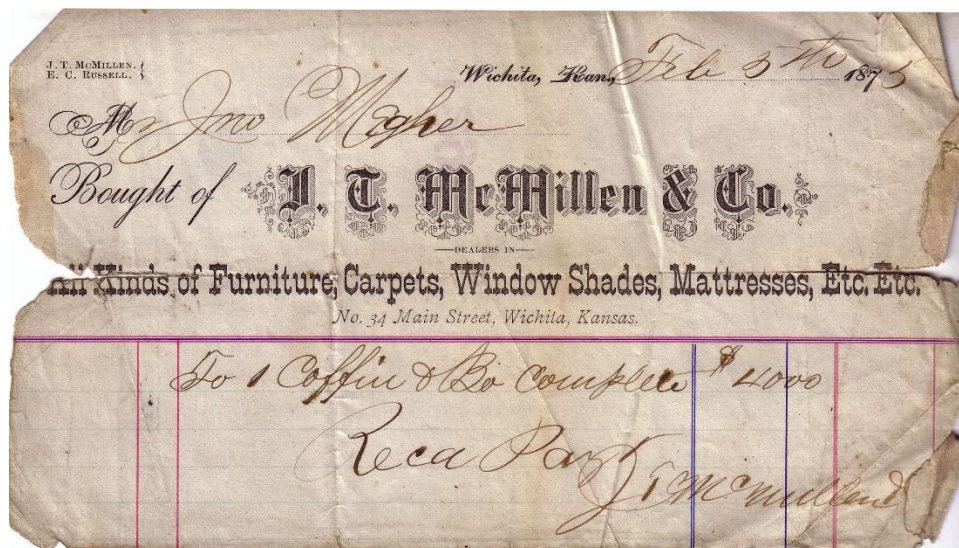 J. T. McMillen.
E. C. Russell.
Wichita, Kan., Feb 5th 1875
Mr Jno Megher
Bought of J. T. McMillen & Co.
DEALERS IN
All Kinds of Furniture, Carpets, Window Shades, Mattresses, Etc. Etc.
No. 34 Main Street, Wichita, Kansas.
To 1 Coffin & Bo Complete $ 4000
Recd Payt
J T McMillen